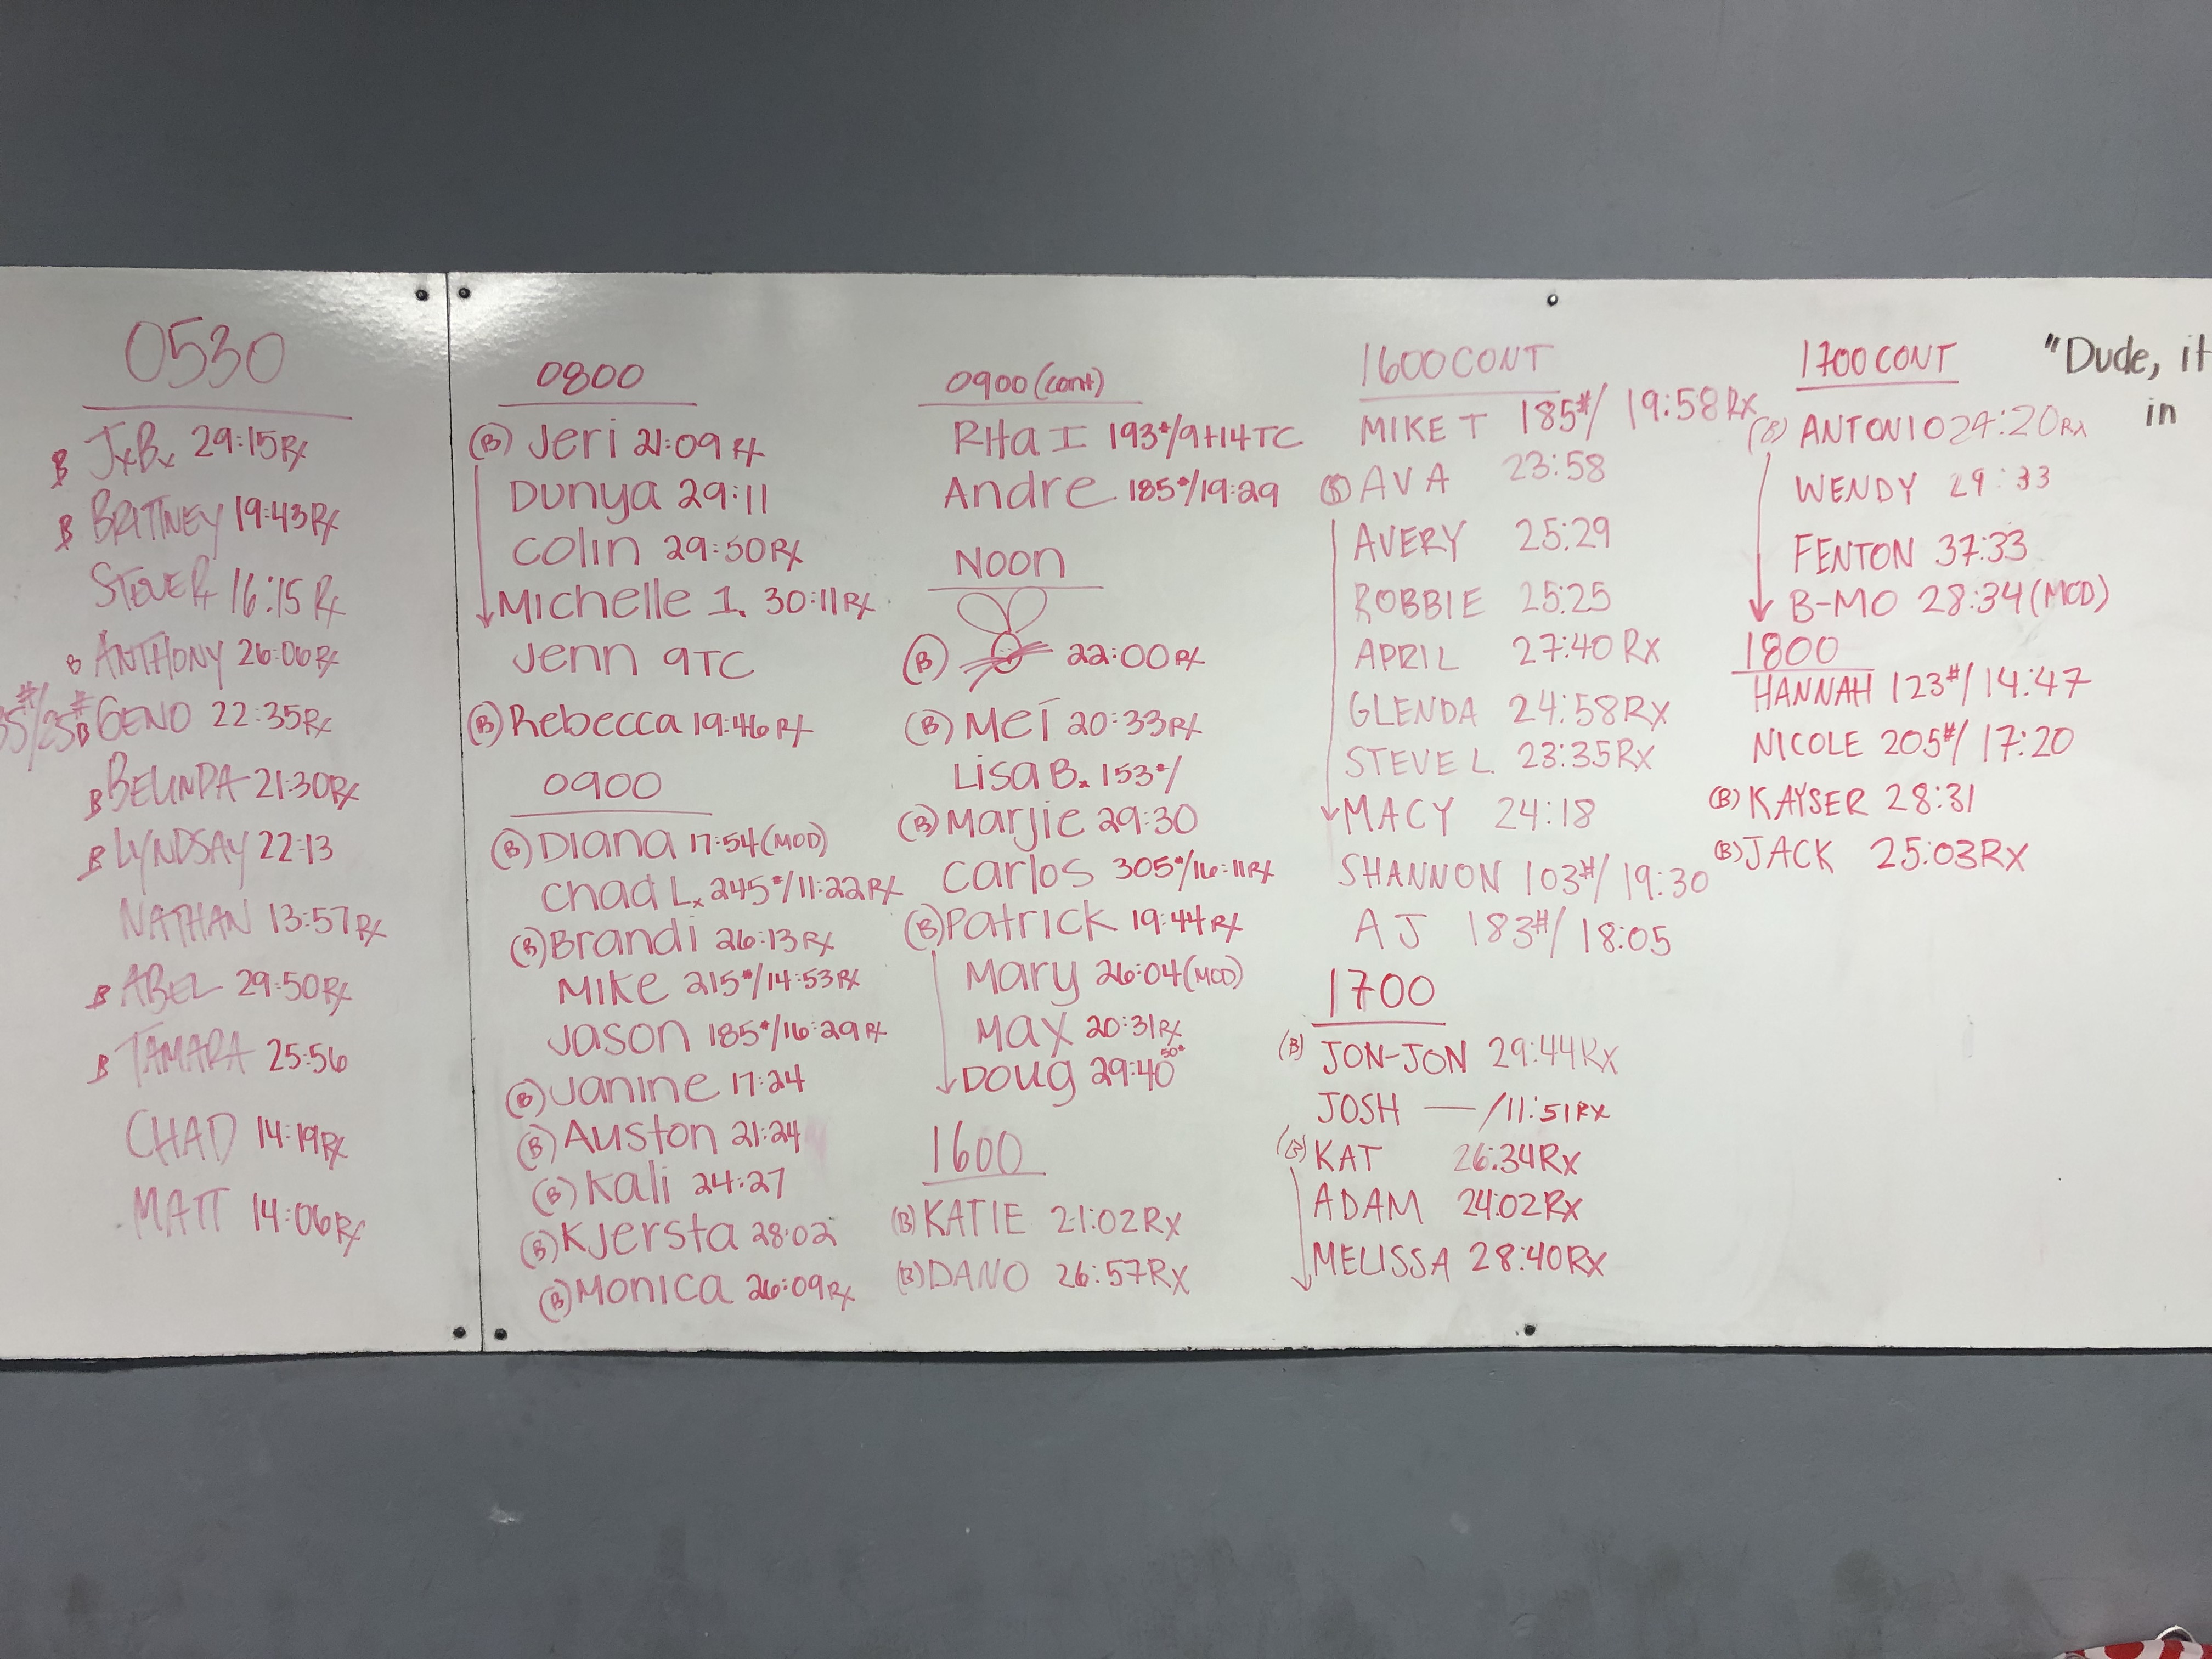 0530
B JxBx 29:15Rx
B BRITTNEY 19:43Rx
STEVE R 16:15 Rx
B ANTHONY 26:06Rx
35#/25# B GENO 22:35Rx
B BELINDA 21:30Rx
B LYNDSAY 22:13
NATHAN 13:57Rx
B ABEL 29:50Rx
B TAMARA 25:56
CHAD 14:19Rx
MATT 14:06Rx
0800
(B) Jeri 21:09 Rx
Dunya 29:11
Colin 29:50Rx
Michelle I. 30:11Rx
Jenn 9TC
(B) Rebecca 19:46 Rx
0900
(B) Diana 17:54 (MOD)
Chad L. 245#/11:22Rx
(B) Brandi 26:13Rx
Mike 215#/14:53Rx
Jason 185#/16:29Rx
(B) Janine 17:24
(B) Auston 21:24
(B) Kali 24:27
(B) Kjersta 28:02
(B) Monica 26:09Rx
0900 (cont)
Rita I 193#/9+14TC
Andre 185#/19:29
Noon
(B) 22:00Rx
(B) Mei 20:33Rx
Lisa B. 153#/
(B) Marjie 29:30
Carlos 305#/16:11Rx
(B) Patrick 19:44Rx
Mary 26:04 (MOD)
Max 20:31Rx
Doug 29:40 50#
1600
(B) KATIE 21:02Rx
(B) DANO 26:57Rx
1600 CONT
MIKE T 185#/ 19:58Rx
(B) AVA 23:58
AVERY 25:29
ROBBIE 25:25
APRIL 27:40 Rx
GLENDA 24:58Rx
STEVE L. 23:35Rx
MACY 24:18
SHANNON 103#/ 19:30
AJ 183#/ 18:05
1700
(B) JON-JON 29:44Rx
JOSH — /11:51Rx
(B) KAT 26:34Rx
ADAM 24:02Rx
MELISSA 28:40Rx
1700 CONT
(B) ANTONIO 24:20Rx
WENDY 29:33
FENTON 37:33
B-MO 28:34 (MOD)
1800
HANNAH 123#/ 14:47
NICOLE 205#/ 17:20
(B) KAYSER 28:31
(B) JACK 25:03Rx
"Dude, it
in